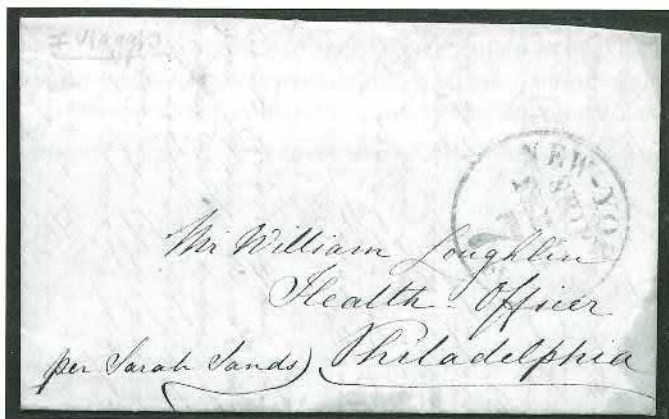 I Viaggio
NEW-YOR
SHIP
7
Mr William Loughlin
Health Officer
Philadelphia
per Sarah Sands)